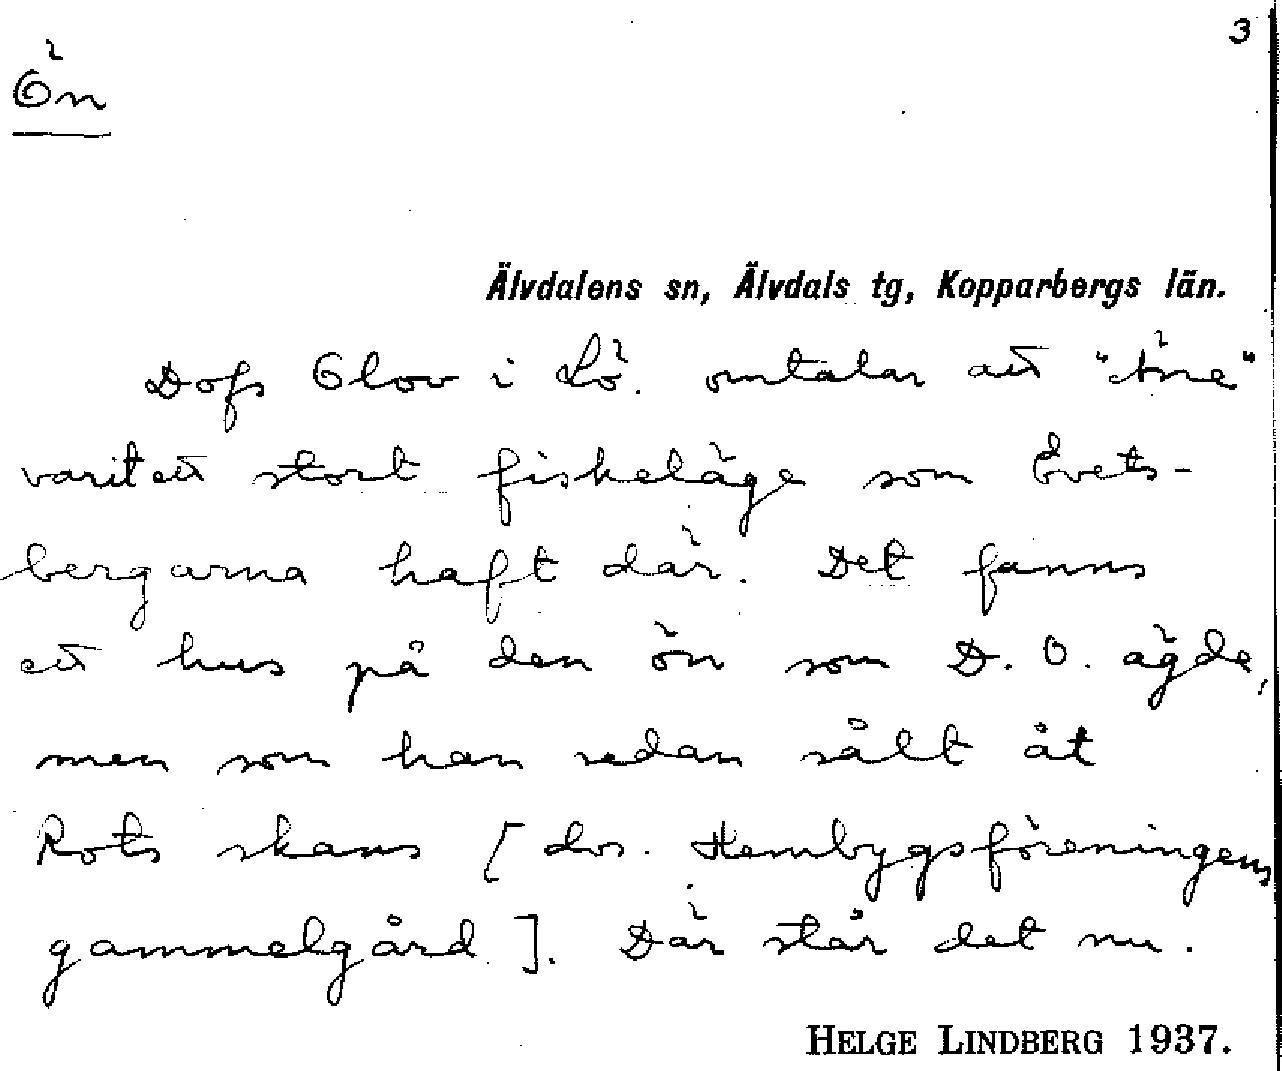 3
Ön
Älvdalens sn, Älvdals tg, Kopparbergs län.
Dofs Olov i Lö. omtalar att
varit ett stort fiskeläge som Evets-
bergarna haft där. Det fanns
ett hus på den ön som D. O. ägde,
men som han sedan sålt åt
Rots skans [dvs. Hembygsföreningens
gammelgård]. Där står det nu.
HELGE LINDBERG 1937.